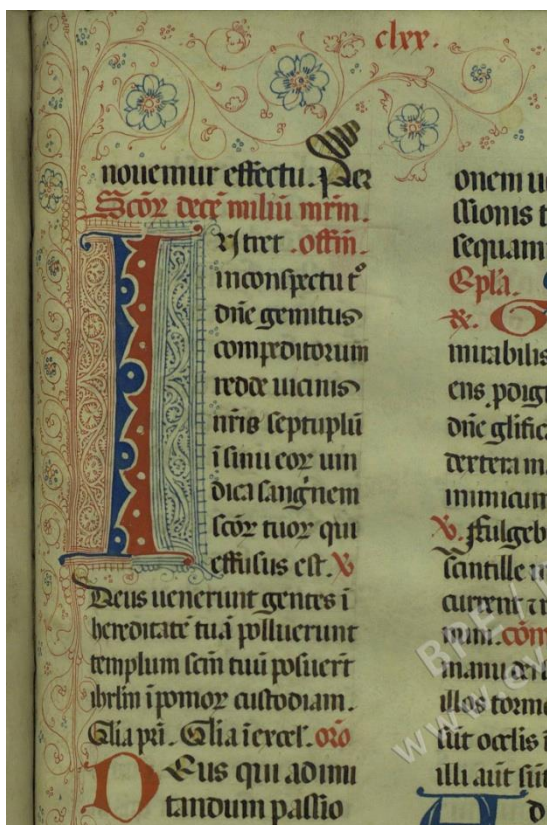 clxx.
nouemur effectu. Per
Scōꝝ decē miliū mr̄m.
INtret . offm̄.
in conspectu t᷒
dn̄e gemitus
compeditorum
redde uicinis
nr̄is septuplū
ī sinu eoꝝ uin
dica sanguinem
scōꝝ tuoꝝ qui
effusus est. V
Deus uenerunt gentes ī
hereditatē tuā polluerunt
templum scm̄ tuū posuer̄t
ihrlm̄ ī pomoꝝ custodiam.
Glia pr̄i. Glia ī excel. or̄o
DEus qui ad imi
tandum passio
onem u
ssionis t
sequam
Ep̄la.
R.
mirabilis
ens
dn̄e glific
dextera m
inimicum
V. Fulgeb
scintille
current
num. com
manu de
illos torme
sūt oc̄lis ī
illi aūt sūt